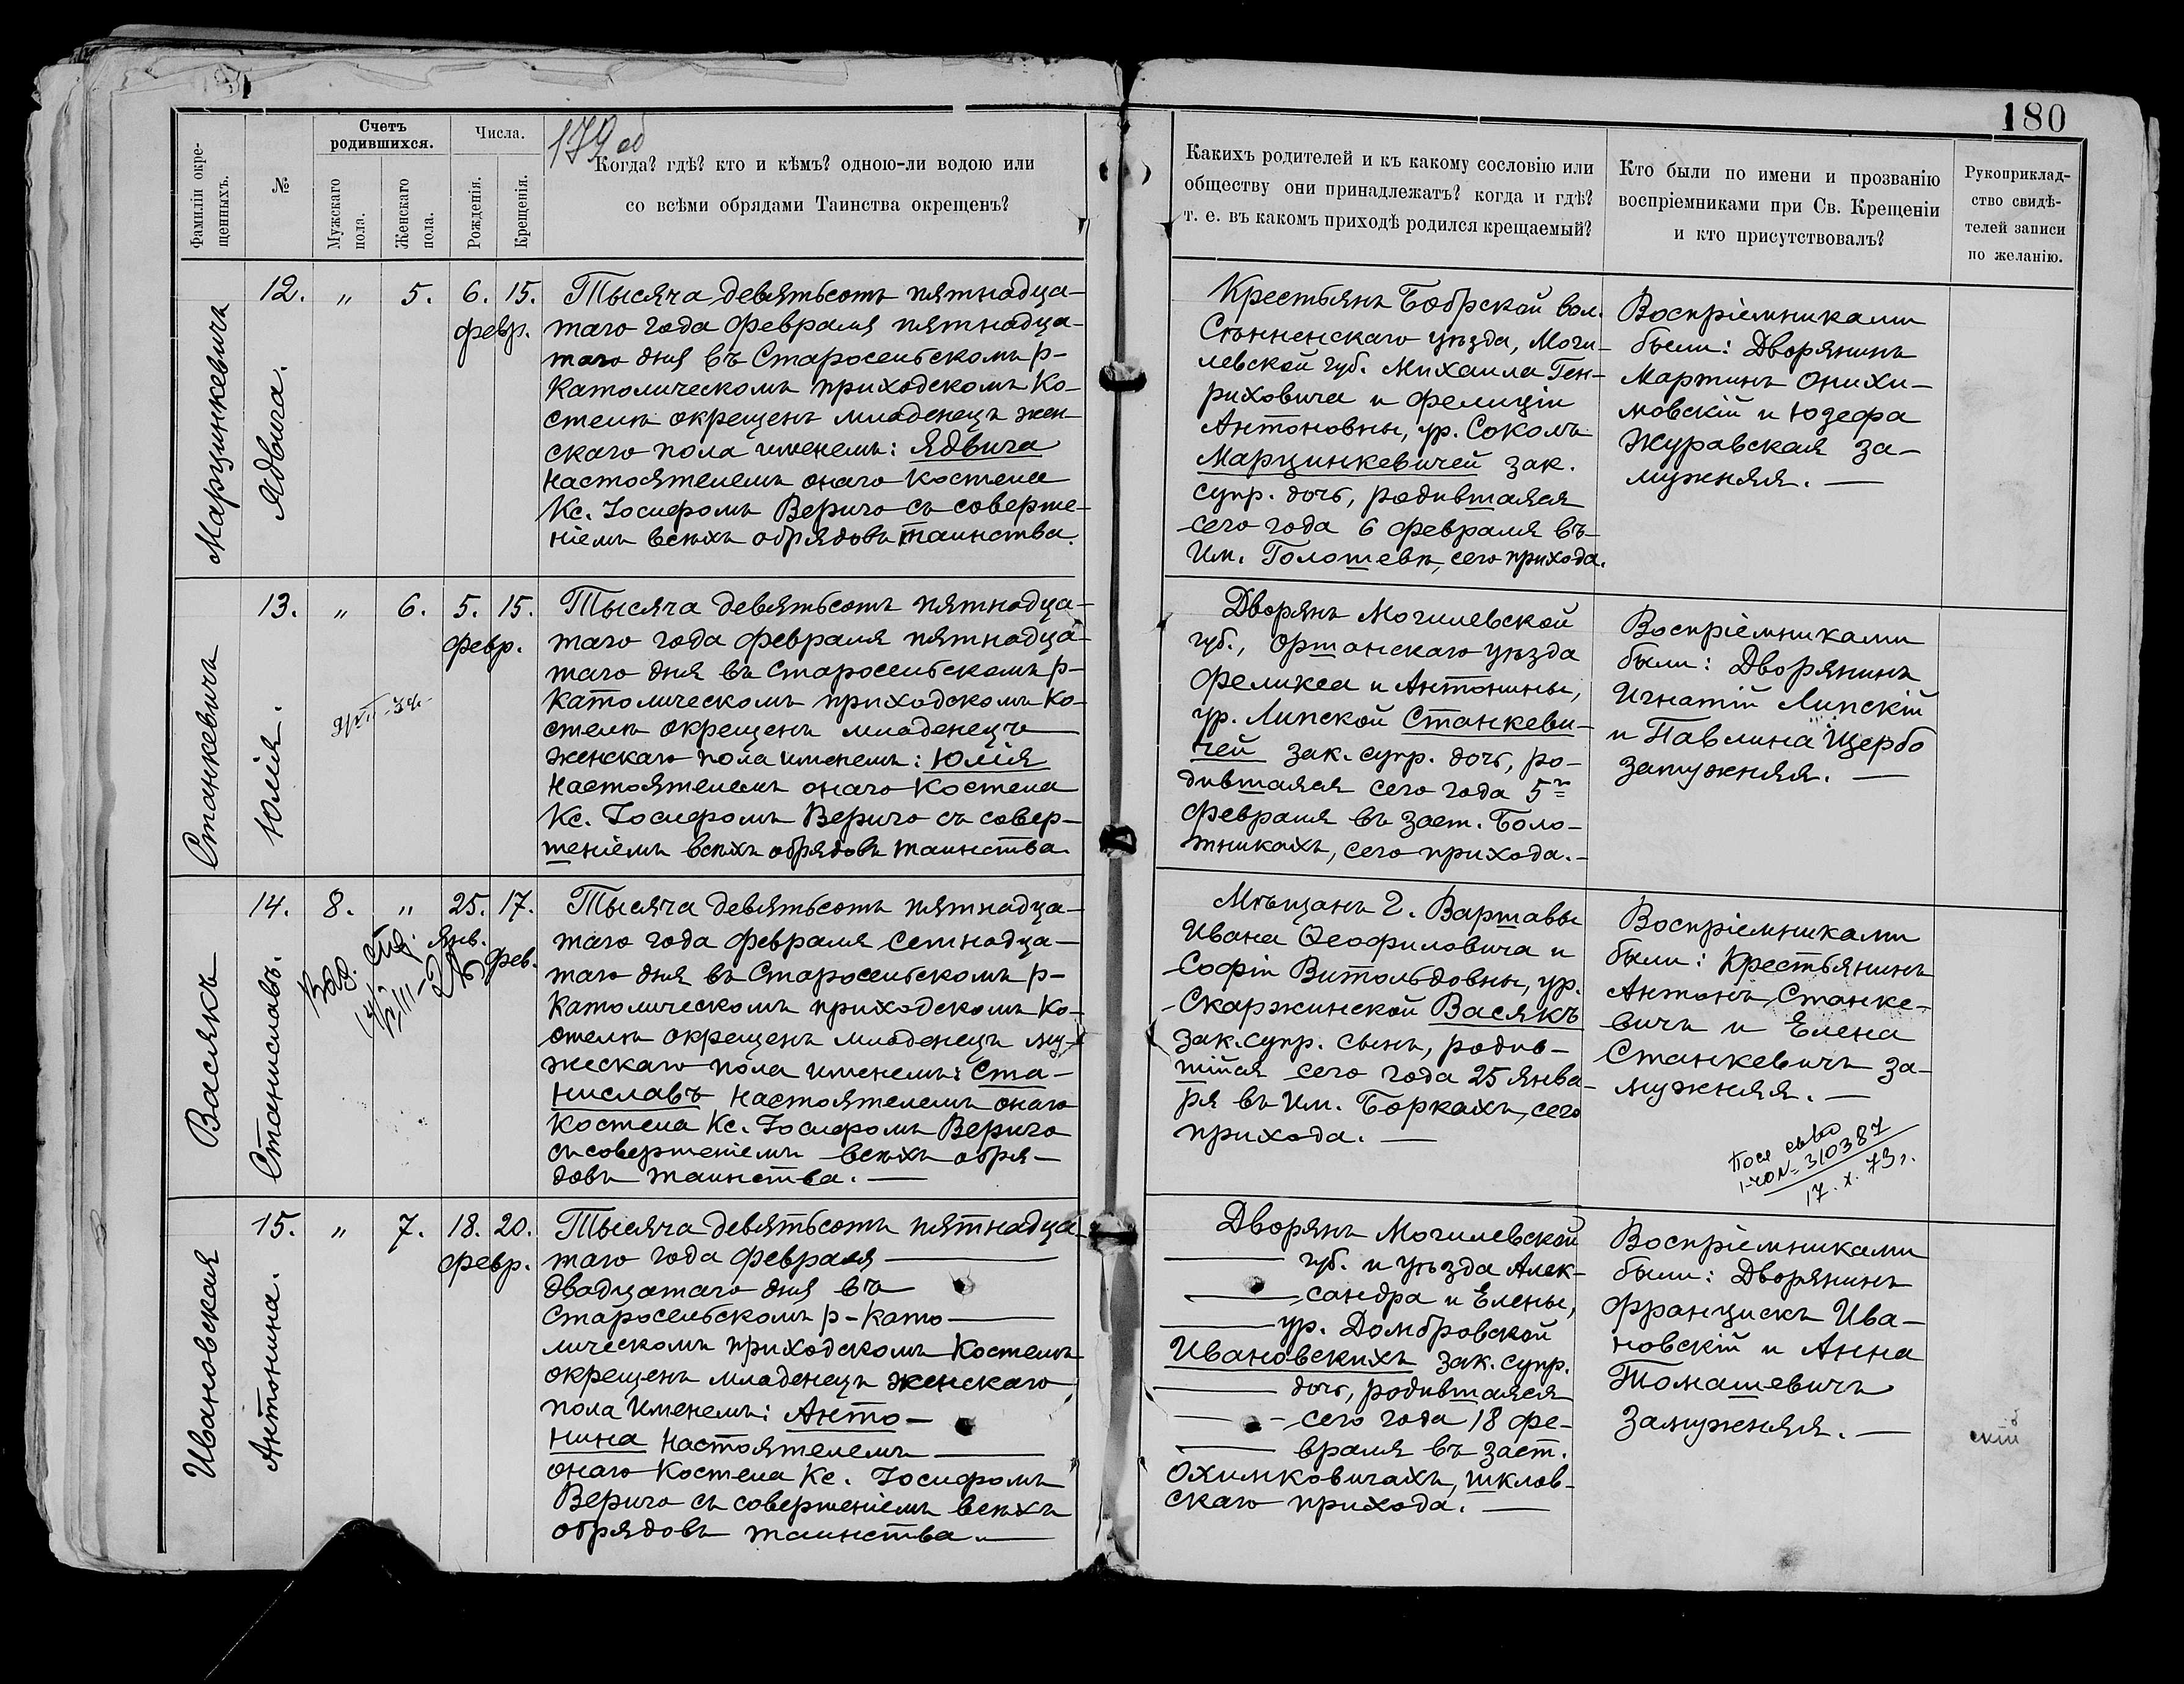 180
179 об
Фамиліи окре-
щенныхъ.
№
Счетъ
родившихся.
Мужскаго
пола.
Женскаго
пола.
Числа.
Рожденія.
Крещенія.
Когда? гдѣ? кто и кѣмъ? одною-ли водою или
со всѣми обрядами Таинства окрещенъ?
Какихъ родителей и къ какому сословію или
обществу они принадлежатъ? когда и гдѣ?
т. е. въ какомъ приходѣ родился крещаемый?
Кто были по имени и прозванію
воспріемниками при Св. Крещеніи
и кто присутствовалъ?
Рукоприклад-
ство свидѣ-
телей записи
по желанію.
Марцинкевичъ
Ядвига.
12. „ 5. 6. 15.
февр.
Тысяча девятьсотъ пятнадца-
таго года февраля пятнадца-
таго дня въ Старосельскомъ р-
католическомъ приходскомъ ко-
стелѣ окрещенъ младенецъ жен
скаго пола именемъ: Ядвига
настоятелемъ онаго костела
Кс. Іосифомъ Верыго съ соверше-
ніемъ всѣхъ обрядовъ таинства.
Крестьянъ Бобрской вол.
Сѣнненскаго уѣзда, Моги-
левской губ. Михаила Ген-
риховича и Фелиціи
Антоновны, ур. Соколъ
Марцинкевичей зак.
супр. дочь, родившаяся
сего года 6 февраля въ
Им. Голошевѣ, сего прихода.
Воспріемниками
были: Дворянинъ
Мартинъ Онихи-
мовскій и Юзефа
Журавская за-
мужняя. —
Станкевичъ
Юлія.
13. „ 6. 5. 15.
февр.
Тысяча девятьсотъ пятнадца-
таго года февраля пятнадца-
таго дня въ Старосельскомъ р-
католическомъ приходскомъ ко-
стелѣ окрещенъ младенецъ
женскаго пола именемъ: Юлія
настоятелемъ онаго костела
Кс. Іосифомъ Верыго съ совер-
шеніемъ всѣхъ обрядовъ таинства.
Дворянъ Могилевской
губ., Оршанскаго уѣзда
Феликса и Антонины,
ур. Липской Станкеви-
чей зак. супр. дочь, ро-
дившаяся сего года 5го
февраля въ заст. Боло-
тникахъ, сего прихода.-
Воспріемниками
были: Дворянинъ
Игнатій Липскій
и Павлина Щербо
замужняя. —
Васякъ
Станиславъ.
14. 8. „ 25. 17.
Янв.
фев.
Тысяча девятьсотъ пятнадца-
таго года февраля семнадца-
таго дня въ Старосельскомъ р-
католическомъ приходскомъ ко-
стелѣ окрещенъ младенецъ му-
жескаго пола именемъ: Ста-
ниславъ настоятелемъ онаго
костела Кс. Іосифомъ Верыго
съ совершеніемъ всѣхъ обря-
довъ таинства. —
Мѣщанъ г. Варшавы
Ивана Ѳеофиловича и
Софіи Витольдовны, ур.
Скаржинской Васякъ
зак. супр. сынъ, родив-
шійся сего года 25 янва-
ря въ Им. Боркахъ, сего
прихода. —
Воспріемниками
были: Крестьянинъ
Антонъ Станке-
вичъ и Елена
Станкевичъ за-
мужняя. —
310387
17. X. 73 г.
Ивановская
Антонина.
15. „ 7. 18. 20.
февр.
Тысяча девятьсотъ пятнадца-
таго года февраля —
двадцатаго дня въ
Старосельскомъ р-като —
лическомъ приходскомъ костелѣ
окрещенъ младенецъ женскаго
пола именемъ: Анто-
нина настоятелемъ —
онаго костела Кс. Іосифомъ
Верыго съ совершеніемъ всѣхъ
обрядовъ таинства. —
Дворянъ Могилевской
губ. и уѣзда Алек-
сандра и Елены,
ур. Домбровской
Ивановскихъ зак. супр.
дочь, родившаяся
сего года 18 фе-
враля въ заст.
Охимковичахъ, шклов-
скаго прихода. —
Воспріемниками
были: Дворянинъ
Францискъ Ива-
новскій и Анна
Томашевичъ
замужняя. —
скій